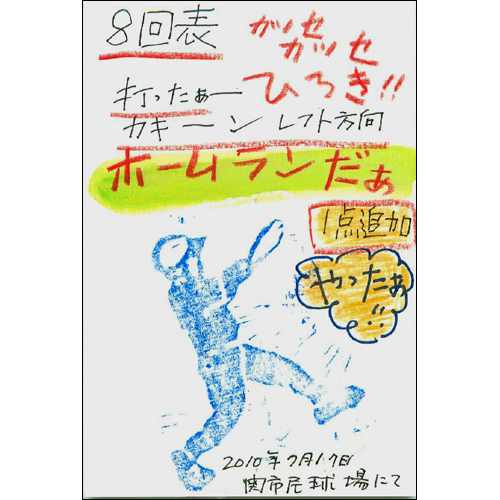 8回表
カッセ
カッセ
ひろき!!
打ったぁー
カキーン レフト方向
ホームランだぁ
1点追加
やったぁ
!!
2010年7月17日
関市民球場にて